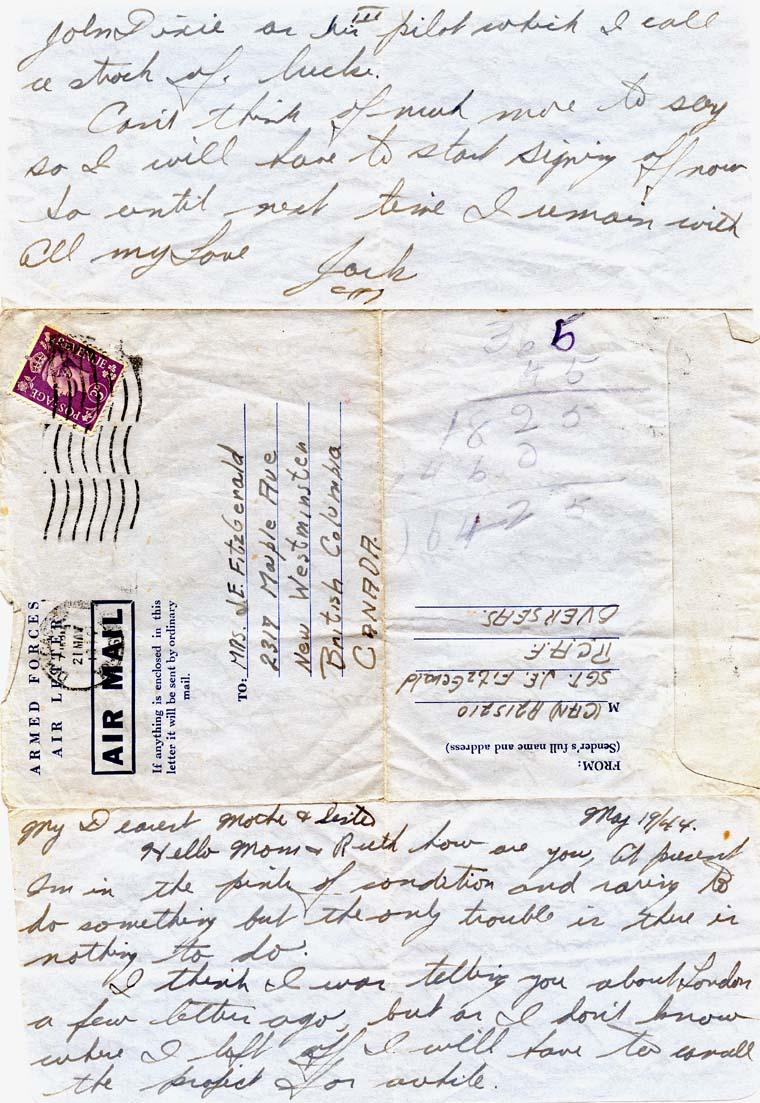 John Dixie as his pilot which I call
a strock of lucke.
Can't think of much more to say
so I will have to start signing off now
so until next time I remain with
All my Love Jack
POSTAGE REVENUE
3D
21 MAY
ARMED FORCES
AIR LETTER
AIR MAIL
If anything is enclosed in this
letter it will be sent by ordinary
mail.
TO: MRS. J.E. FitzGerald
2317 Maple Ave
New Westminster
British Columbia
CANADA.
365
45
1825
460
16425
FROM:
(Sender's full name and address)
CAN R215210
SGT. J.E. FitzGerald
R.C.A.F.
OVERSEAS.
My Dearest Mother & Sister May 19/44.
Hello Mom & Ruth how are you, At present
I'm in the pink of condition and raring to
do something but the only trouble is there is
nothing to do.
I think I was telling you about London
a few letters ago, but as I don't know
where I left off I will have to
the project for awhile.